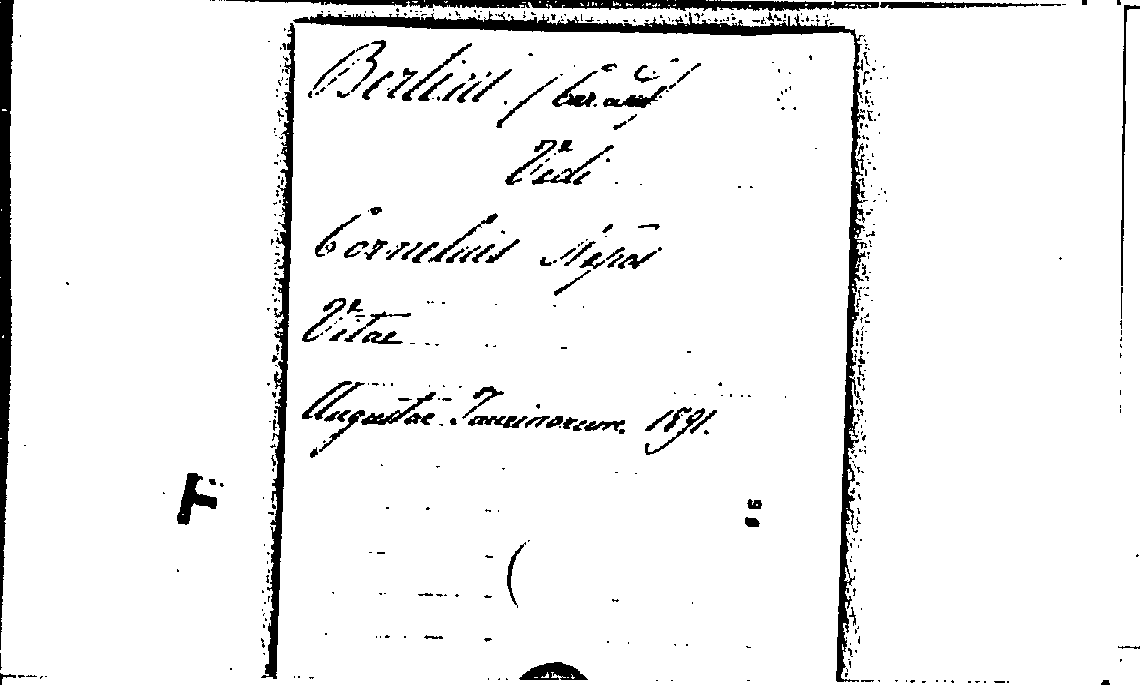 Bertini. (
Vedi
Cornelius Nepos
Vitae
Augustae Taurinorum. 1891.